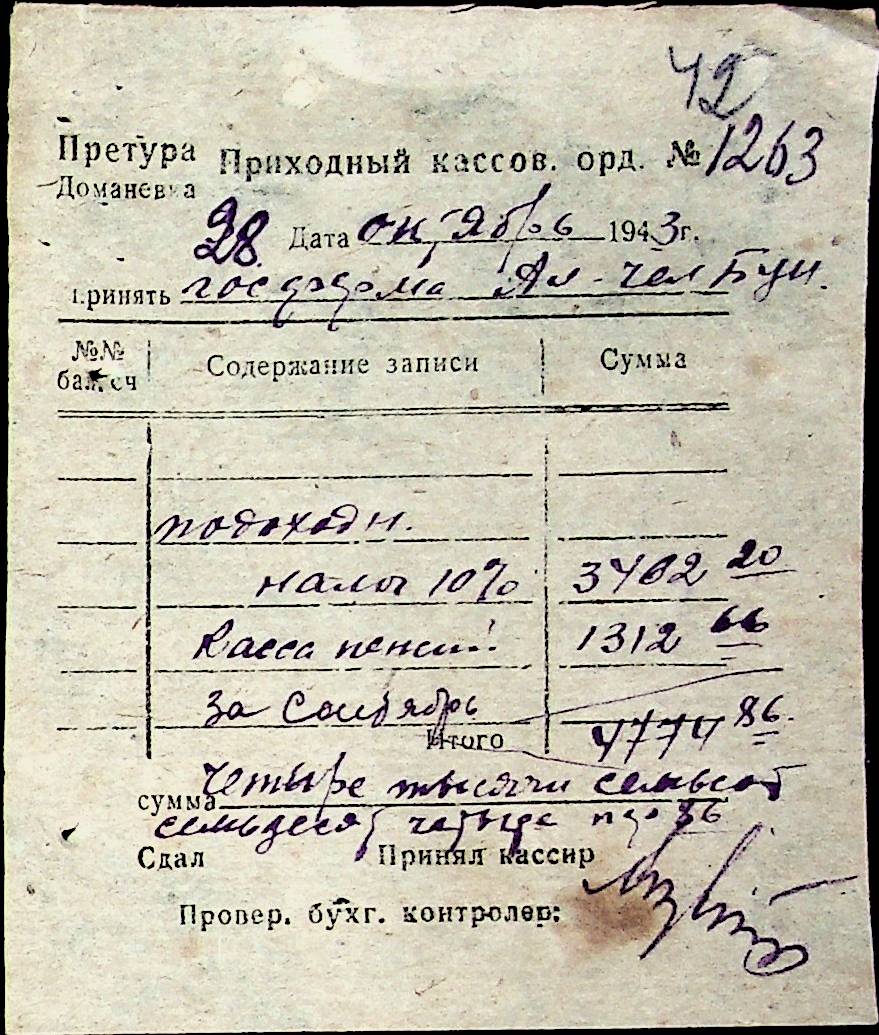 42
Претура Приходный кассов. орд. № 1263
Доманевка
28 Дата октябрь 1943г.
Принять госферма Ал-чел Буи.
№№ бал. сч Содержание записи Сумма
подоходн.
налог 10% 3462 20
Касса пенсий 1312 66
За Сентябрь
Итого 4774 86
сумма Четыре тысячи семьсот
семьдесят четыре 86
Сдал Принял кассир
Провер. бухг. контролер: